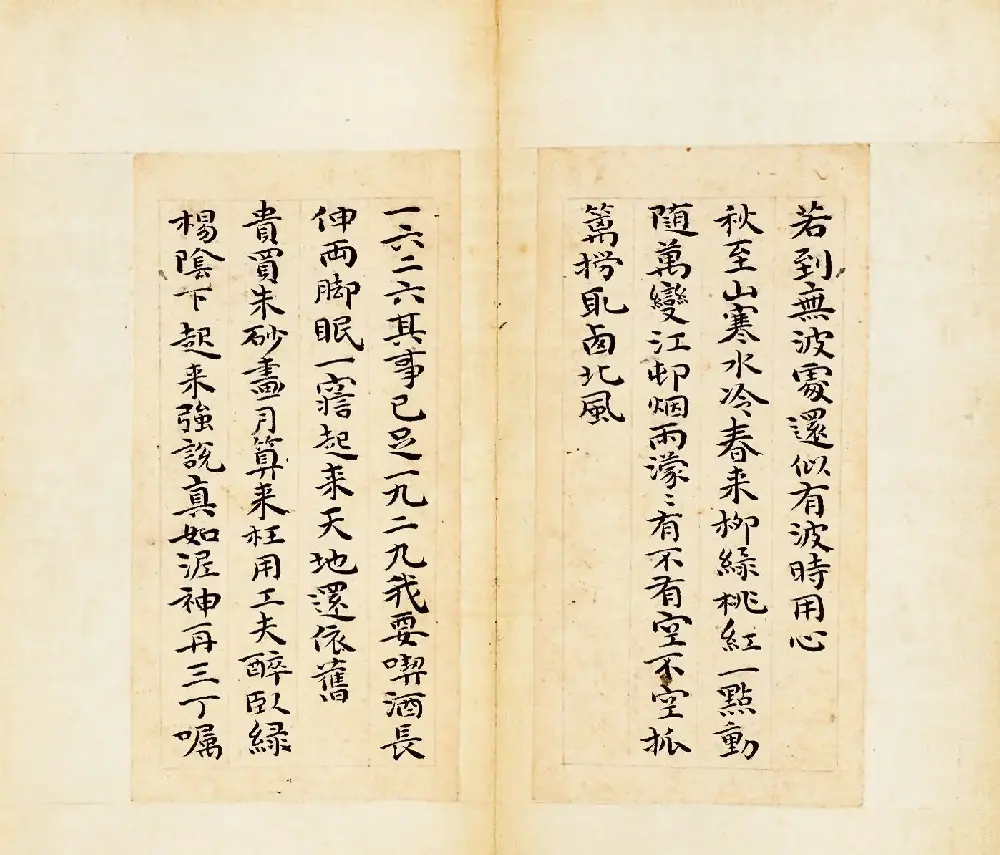 若到無波處還似有波時用心
秋至山寒水冷春来柳綠桃紅一點動
随萬變江邨烟雨濛〻有不有空不空
笊籬撈取西北風
一六二六其事已足一九二九我要喫酒長
伸両脚眠一寤起来天地還依舊
貴買朱砂畫月算来枉用工夫醉臥緑
楊陰下起来強說真如泥神再三丁嘱